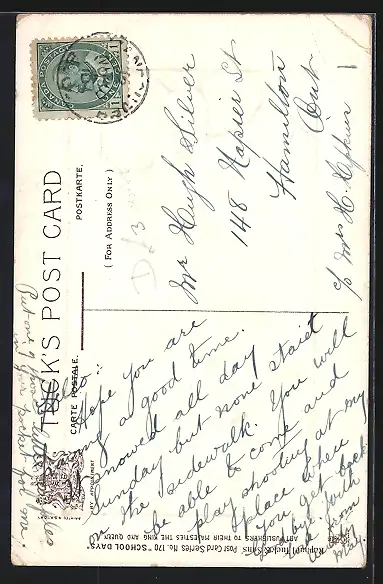 TUCK'S POST CARD
CARTE POSTALE.
POSTKARTE.
( FOR ADDRESS ONLY )
CANADA POSTAGE
Mr Hugh Silver
148 Napier St
Hamilton
Ont
c/o Mrs H.
D/3
Hello:-
Hope you are
having a good time.
Snowed all day
Sunday but none staid
on the sidewalk. You will
be able to come and
play shooting at my
place when
you get back.
Bye. with
from
May.
Put one of these
in your pocket for me.
BY APPOINTMENT
Raphael Tuck & Sons' Post Card Series No. 170 "SCHOOL DAYS"
ART PUBLISHERS TO THEIR MAJESTIES THE KING AND QUEEN